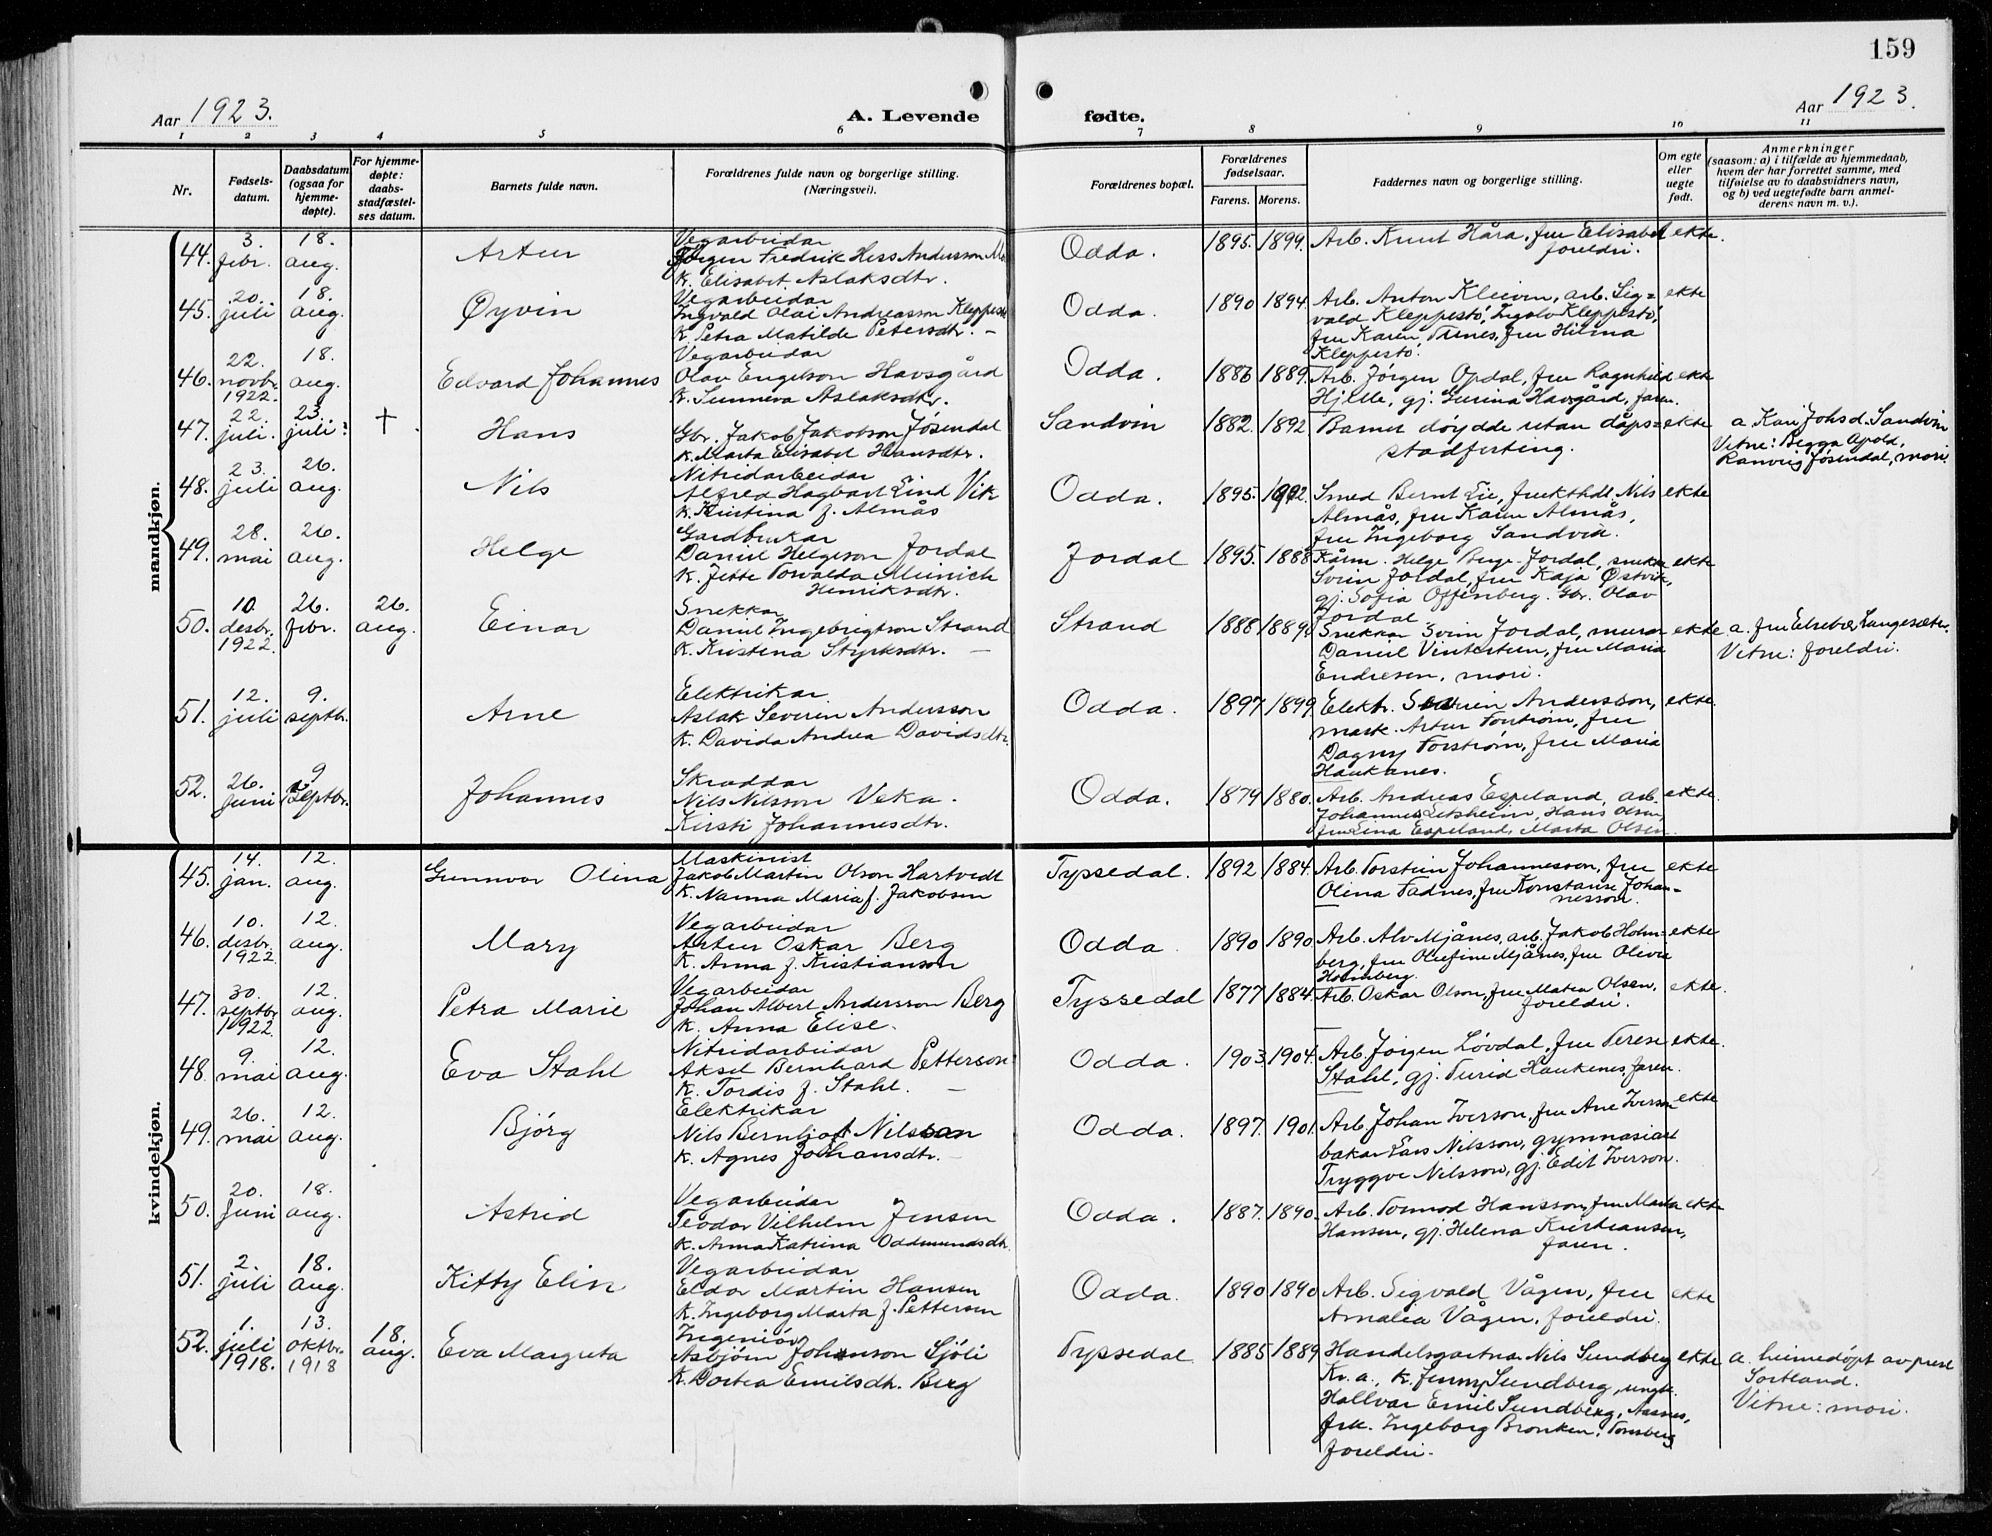 159
Aar 1923.
A. Levende
fødte.
Aar 1923.
1 2 3 4 5 6 7 8 9 10 11
Nr.
Fødsels-
datum.
Daabsdatum
(ogsaa for
hjemme-
døpte).
For hjemme-
døpte:
daabs-
stadfæstel-
ses datum.
Barnets fulde navn.
Forældrenes fulde navn og borgerlige stilling.
(Næringsvei).
Forældrenes bopæl.
Forældrenes
fødselsaar.
Farens. Morens.
Faddernes navn og borgerlige stilling.
Om egte
eller
uegte
født.
Anmerkninger
(saasom: a) i tilfælde av hjemmedaab,
hvem der har forrettet samme, med
tilføielse av to daabsvidners navn,
og b) ved uegtefødte barn anmel-
derens navn m. v.).
mandkjøn.
44. 3. febr. 18. aug. Artur
Vegarbeidar
Jørgen Fredrik Hess Andersson
k. Elisabet Aslaksdtr.
Odda. 1895. 1899. Arb. Knut Håra, fru Elisabet
foreldri.
ekte.
45. 20. juli 18. aug. Øyvin
Vegarbeidar
Ingvald Olai Andreasson Kleppestø
k. Petra Matilde Petersdtr. —
Odda. 1890 1894. Arb. Anton Kleiven, arb. Sig=
vald Kleppestø, Ingolv Kleppestø,
fru Karen Trones, fru Hilma
Kleppestø.
ekte
46. 22. novbr. 1922. 18. aug. Edvard Johannes
Vegarbeidar
Olav Engelson Havsgård
k. Sunneva Aslaksdtr.
Odda. 1886 1889. Arb. Jørgen Opdal, fru Ragnhild
Hjelle, gj. Gurina Havsgård, faren.
ekte
47. 22. juli. 23. juli. † Hans
Gbr. Jakob Jakobson Jøsendal
k. Marta Elisabet Hansdtr.
Sandvin 1882. 1892 Barnet døydde utan dåps=
stadfesting.
ekte
a. Kari Johsd. Sandvin
Vitne: Begga Apold,
Ranveig Jøsendal, mori.
48. 23. juli 26. aug. Nils
Nitridarbeidar
Alfred Hagbart Eind Vik
k. Kristina f. Almås
Odda. 1895. 1892. Smed Bernt Lie, frukthdl. Nils
Almås, fru Karen Almås,
fru Ingeborg Sandvik.
ekte
49. 28. mai 26. aug. Helge
Gardbrukar
Daniel Helgeson Jordal
k. Jette Torvalda Meinich
Henriksdtr.
Jordal 1895. 1888 Kårm. Helge Berge-Jordal, snekkar
Svein Jordal, fru Kaja Østvik,
gj. Sofia Offenberg. Gbr. Olav
Jordal
ekte
50. 10. desbr. 1922. 26. febr. 26. aug. Einar
Snekkar
Daniel Ingebrigtson Strand
k. Kristena Styrksdtr. —
Strand 1888 1889. Snekkar Svein Jordal, murar
Daniel Vintertun, fru Maria
Endresen, mori.
ekte
a. fru Elsebæ Langesæter.
Vitne: foreldri.
51. 12. juli 9. septbr. Arne
Elektrikar
Aslak Severin Andersson
k. Davida Andrea Davidsdtr.
Odda. 1897 1899. Elektr. Severin Andersson,
mask. Artur Torstrøm, fru
Dagny Torstrøm, fru Maria
Haukanes.
ekte.
52. 26. juni 9 septbr. Johannes
Skraddar
Nils Nilsson Veka.
Kirsti Johannesdtr.
Odda. 1879 1880. Arb. Andreas Espeland, arb.
Johannes Eitsheim, Hans Olsen,
fru Lina Espeland, Marta Olsen.
ekte.
kvindekjøn.
45. 14. jan. 12. aug. Gunnvor Olina
Maskinist
Jakob Martin Olson Hartvedt
k. Nanna Maria f. Jakobsen
Tyssedal. 1892 1884. Arb. Torstein Johannesson, fru
Olina Tadnes, fru Konstanse Johan-
nesson.
ekte
46. 10. desbr. 1922. 12. aug. Mary
Vegarbeidar
Artur Oskar Berg
k. Anna f. Kristianson
Odda. 1890 1890. Arb. Alv Mjånes, arb. Jakob Holm=
berg, fru Olufine Mjånes, fru Olivia
Holmberg.
ekte
47. 30. septbr. 1922. 12. aug. Petra Marie
Vegarbeidar
Johan Albert Andersson Berg
k. Anna Elise.
Tyssedal 1877 1884. Arb. Oskar Olson, fru Maten Olsen,
foreldri.
ekte.
48. 9. mai 12. aug. Eva Stahl
Nitridarbeidar
Aksel Bernhard Petterson
k. Tordis f. Stahl. —
Odda. 1903. 1904. Arb. Jørgen Løvdal, fru Terese
Stahl, gj. Turid Haukenes, faren.
ekte.
49. 26. mai 12. aug. Bjørg
Elektrikar
Nils Bernhjot Nilsson
k. Agnes Johansdtr. —
Odda. 1897. 1901. Arb. Johan Iverson, fru Ane Iverson
bakar Lars Nilsson, gymnasiast
Tryggve Nilsson, gj. Edit Iverson.
ekte
50. 20. juni 18. aug. Astrid
Vegarbeidar
Teodor Vilhelm Jensen
k. Anna Katrina Oddmundsdtr.
Odda. 1887. 1890. Arb. Tormod Hansson, fru Marta
Hansen, gj. Helena Kristiansen,
faren.
ekte
51. 2. juli 18. aug. Kitty Elin
Vegarbeidar
Eldor Martin Hansen
k. Ingeborg Marta f. Pettersen
Odda. 1890 1890 Arb. Sigvald Vågen, fru
Amalia Vågen, foreldri.
ekte
52. 1. juli 1918. 13. oktbr. 1918 18. aug. Eva Margreta
Ingeniør
Asbjørn Johanson Sjøli
k. Dortea Emilsdtr. Berg
Tyssedal 1885 1889 Handelsgartnar Nils Sundberg
Kr.a., k. Jenny Sundberg, ungk.
Hallvar Emil Sundberg, Aasnes,
frk. Ingeborg Bronken, Tonsberg
foreldri.
ekte
a. heimedøpt av prest
Sortland.
Vitne: mori.